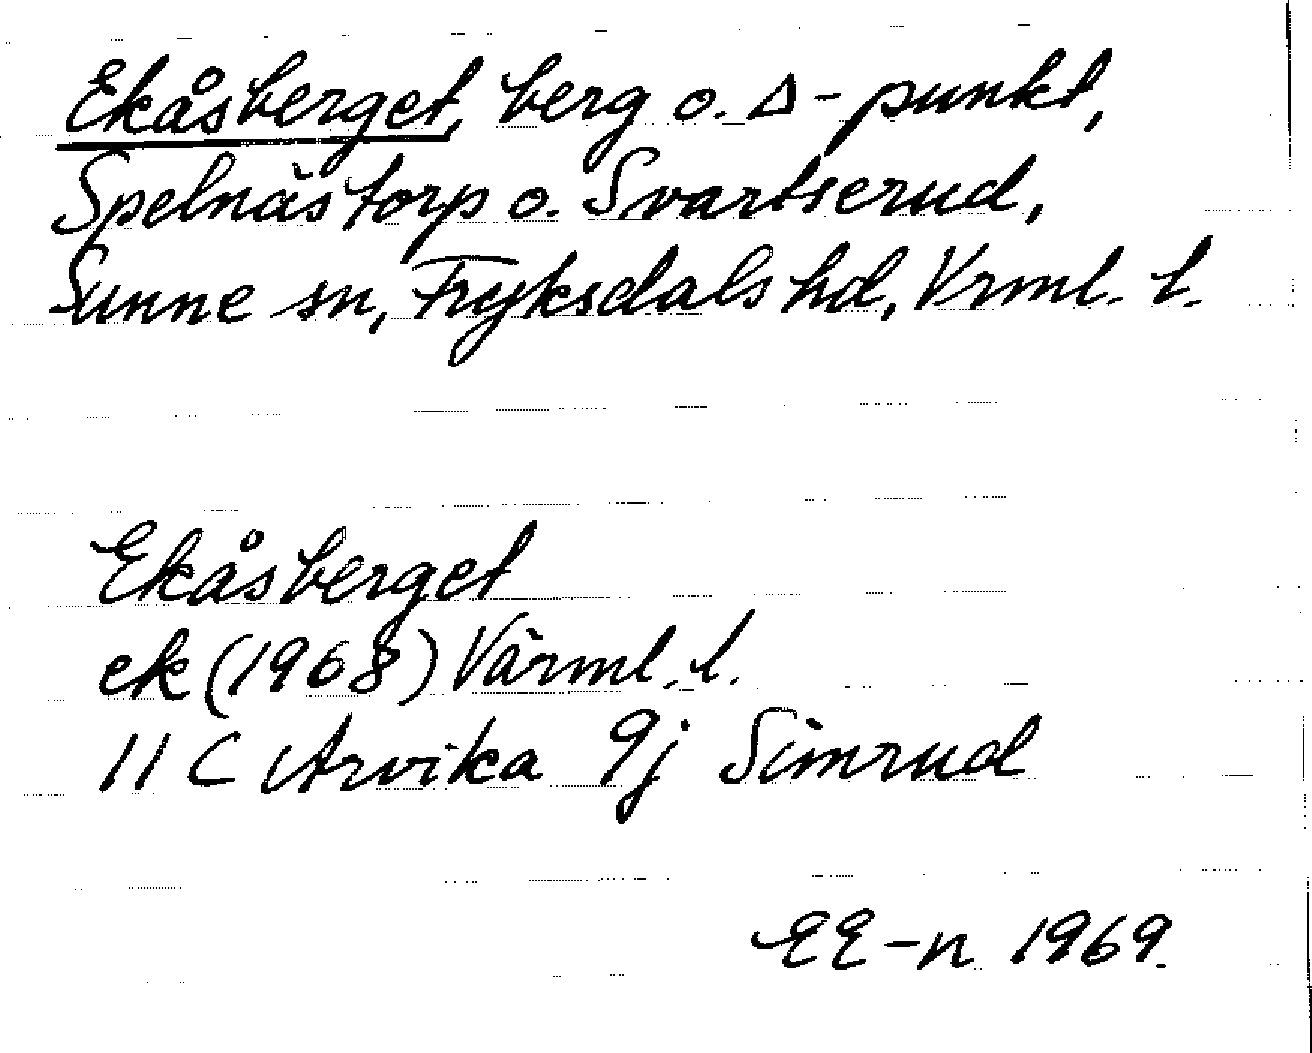 Ekåsberget, berg o. Δ-punkt,
Spelnästorp o. Svartserud,
Sunne sn, Fryksdals hd, Vrml. l.
Ekåsberget
ek (1968) Värml. l.
11 C Arvika 9j Simrud
EE-n 1969.